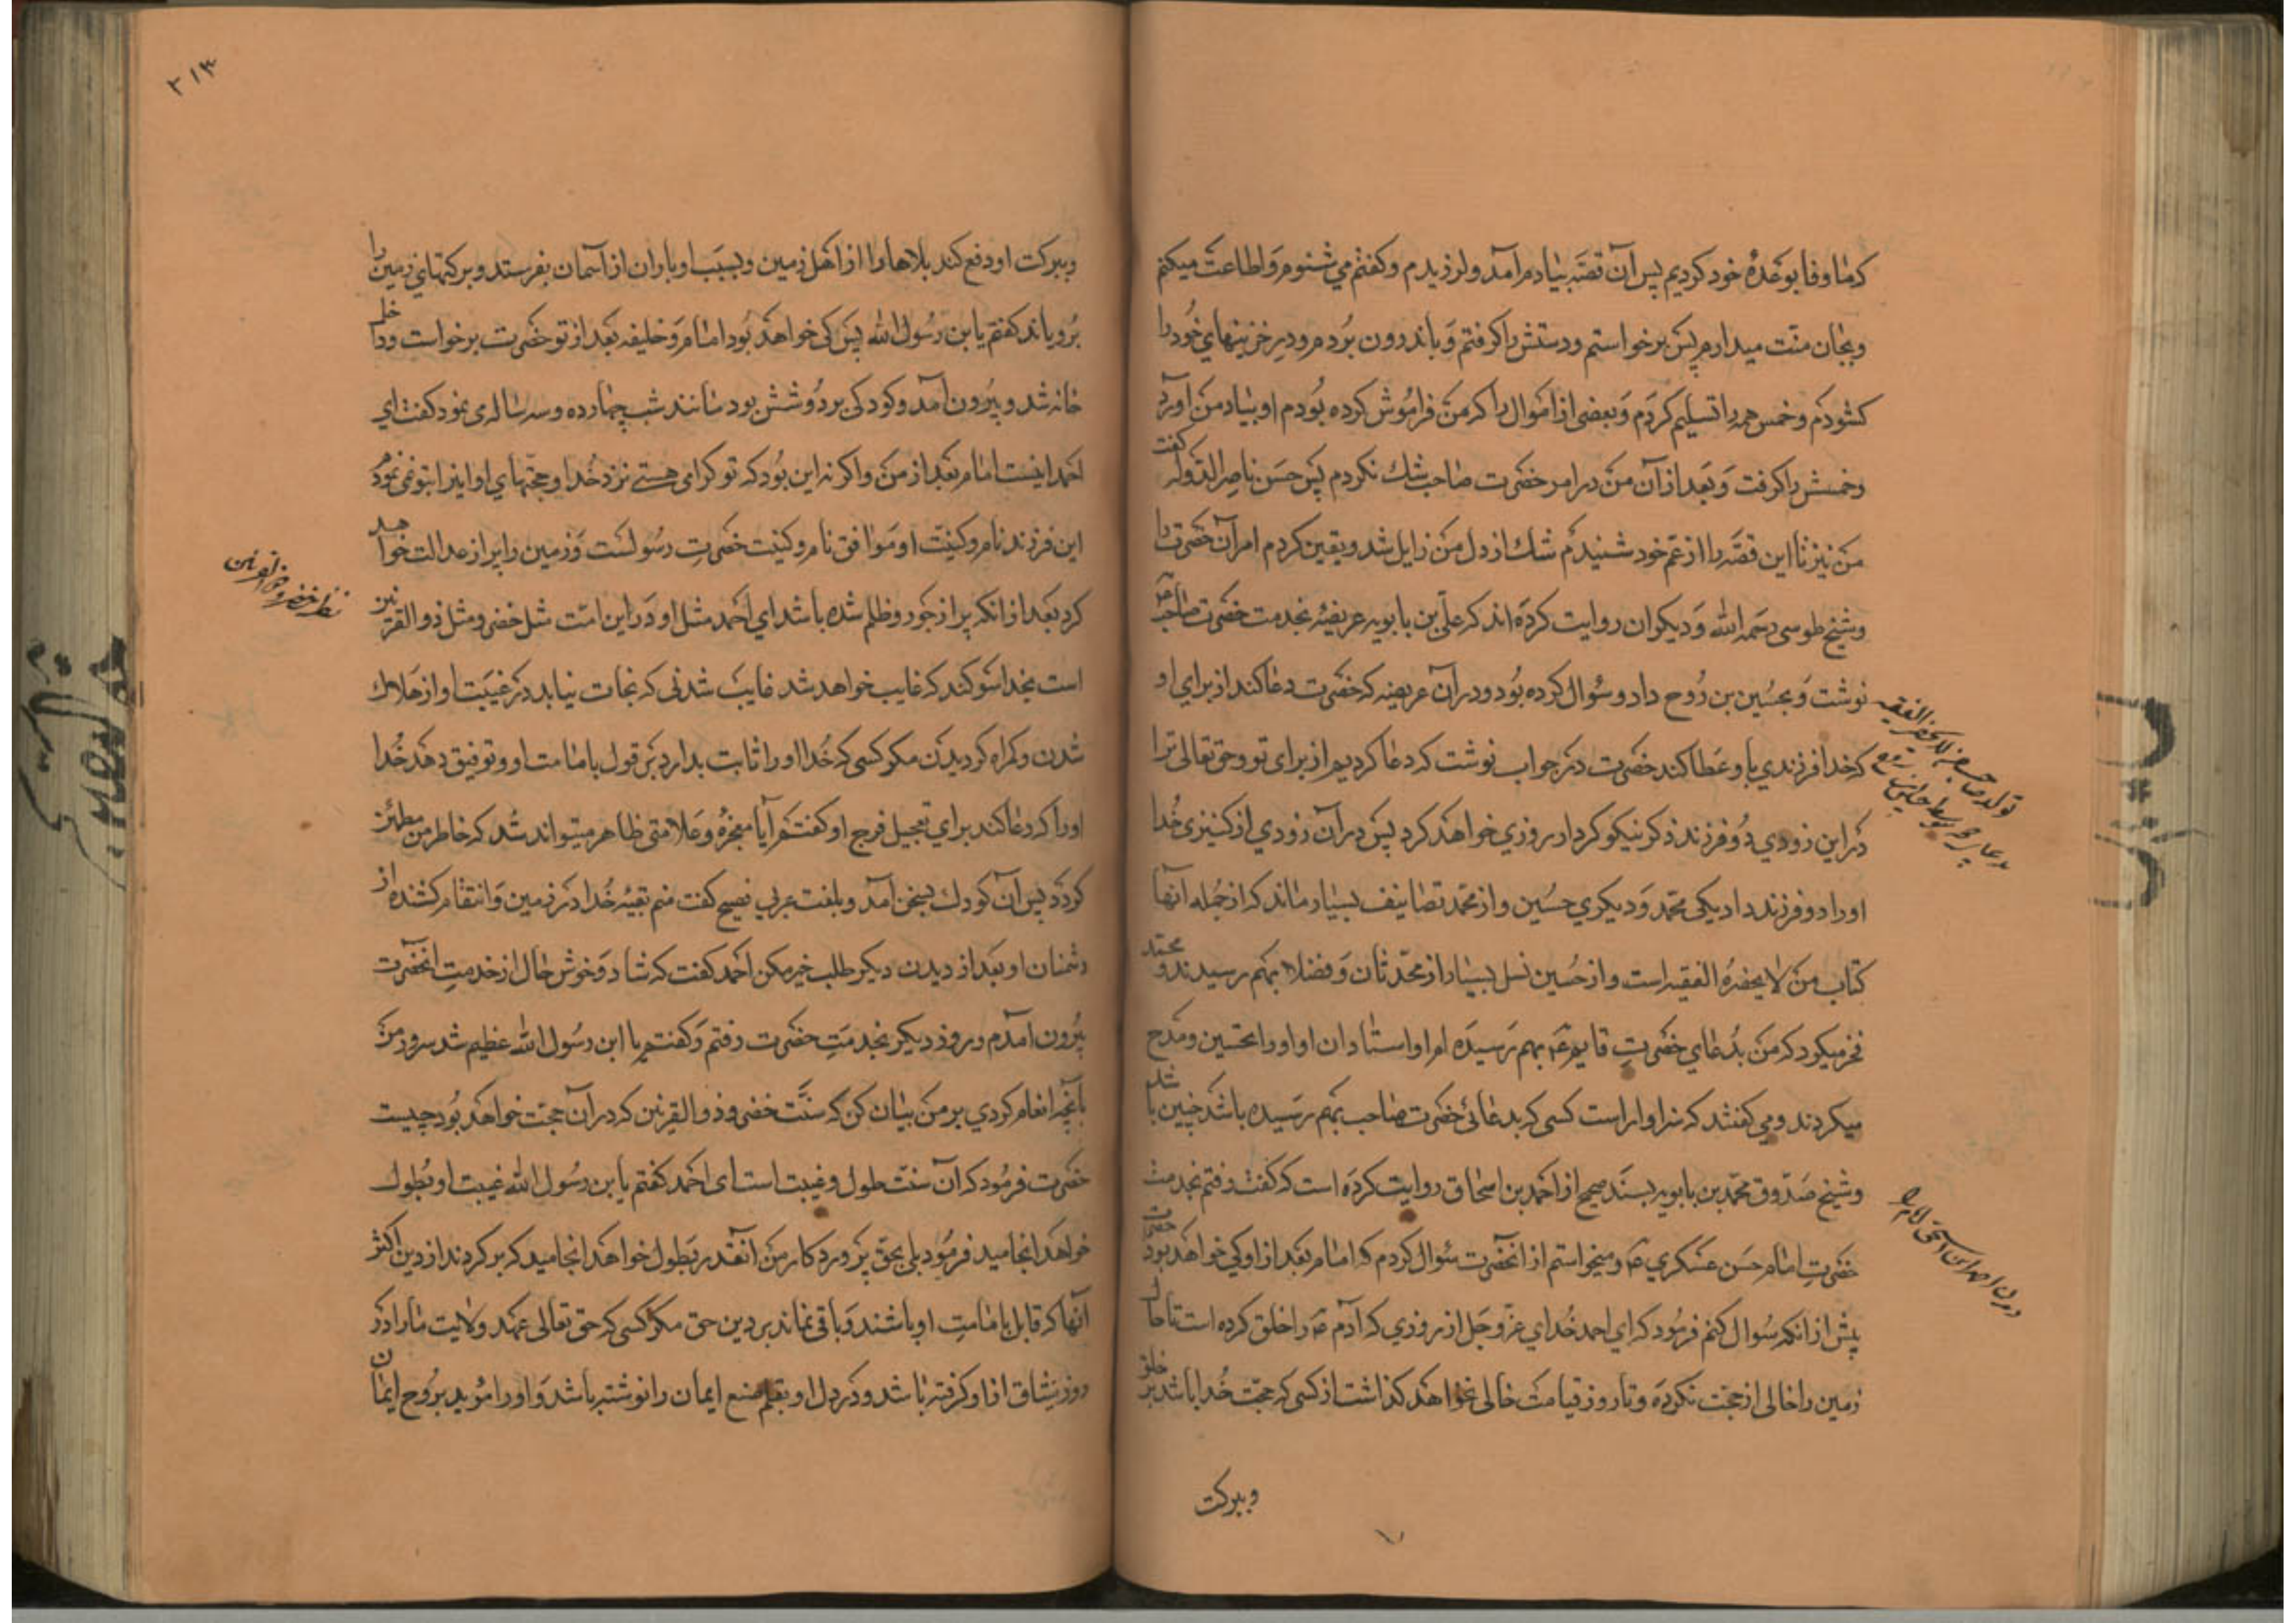 که ما وفا بوعدهٔ خود کردیم پس آن قصّه بیادم آمد و لرزیدم و کفتم می شنوم و اطاعت میکنم
و بجان منّت میدارم پس برخواستم و دستش را کرفتم و باندرون بودم و در خزینهای خود را
کشودم و خمس همه را تسلیم کردم و بعضی از اموال را که من فراموش کرده بودم او بیاد من آورد
و خمسش را کرفت و بعد از آن من در امر حضرت صاحب شک نکردم پس حسن ناصر الدّوله کفت
من نیز تا این قصّه را از عمّ خود شنیدم شک از دل من زایل شد و یقین کردم امر آن حضرت را
و شیخ طوسی رحمه الله و دیکران روایت کرده اند که علی بن بابویه عریضهٔ بخدمت حضرت صاحب
نوشت و بحسین بن روح داد و سؤال کرده بود و در آن عریضه که حضرت دعا کند از برای او
که خدا فرزندی باو عطا کند حضرت در جواب نوشت که دعا کردیم از برای تو و حق تعالی ترا
در این زودی دو فرزند ذکر نیکو کردار روزی خواهد کرد پس در آن زودی از کنیزی خدا
او را دو فرزند داد یکی محمّد و دیکری حسین و از محمّد تصانیف بسیار ماند که از جمله آنها
کتاب من لا یحضره الفقیه است و از حسین نسل بسیار از محدّثان و فضلا بهم رسیدند و محمّد
فخر میکرد که من بدعای حضرت قایم ع بهم رسیده ام و استادان او او را تحسین و مدح
میکردند و می کفتند که سزاوار است کسی که بدعائی حضرت صاحب بهم رسیده باشد چنین باشد
و شیخ صدّوق محمّد بن بابویه بسند صحیح از احمد بن اسحاق روایت کرده است که کفت رفتم بخدمت
حضرت امام حسن عسکری ع و میخواستم از آنحضرت سؤال کردم که امام بعد از او کی خواهد بود حضرت
پیش از انکه سؤال کنم فرمود که ای احمد خدای عزّ و جل از روزی که آدم ع را خلق کرده است تا حال
زمین را خالی از حجّت نکرده و تا روز قیامت خالی نخواهد کذاشت از کسی که حجّت خدا باشد بر خلق
و ببرکت
تولد صاحب من لا یحضره الفقیه
۲۱۳
و ببرکت او دفع کند بلاها را از اهل زمین و بسبب او باران از آسمان بفرستد و برکتهای زمین را
برویاند کفتم یابن رسول الله پس کی خواهد بود امام و خلیفه بعد از تو حضرت برخواست و داخل
خانه شد و بیرون آمد و کودکی بر دوشش بود مانند شب چهارده و سه ساله می نمود کفت ای
احمد اینست امام بعد از من و اکر نه این بود که تو کرامی هستی نزد خدا و حجّتهای او اینرا بتو نمی نمودم
این فرزند نام و کنیت او موافق نام و کنیت حضرت رسولست و زمین را پر از عدالت خواهد
کرد بعد از انکه پر از جور و ظلم شده باشد ای احمد مثل او در این امّت مثل خضر و مثل ذو القرنین
است بخدا سوکند که غایب خواهد شد غایب شدنی که نجات نیابد در غیبت او از هلاک
شدن و کمراه کردیدن مکر کسی که خدا او را ثابت بدارد بر قول بامامت او و توفیق دهد خدا
او را که دعا کند برای تعجیل فرج او کفتم آیا معجزهٔ و علامتی ظاهر میتواند شد که خاطر من مطمئن
کردد پس آن کودک بسخن آمد و بلغت عربی فصیح کفت منم بقیّه خدا در زمین و انتقام کشنده از
دشمنان او بعد از دیدن دیکر طلب خبر مکن احمد کفت که شاد و خوش حال از خدمت انحضرت
بیرون آمدم و روز دیکر بخدمت حضرت رفتم و کفتم یا ابن رسول الله عظیم شد سرور من
بآنچه انعام کردی بر من بیان کن که سنّت خضر و ذو القرنین که در آن حجّت خواهد بود چیست
حضرت فرمود که آن سنّت طول و غیبت است ای احمد کفتم یابن رسول الله غیبت او بطول
خواهد انجامید فرمود بلی بحقّ پرورد کار من آنقدر بطول خواهد انجامید که بر کردند از دین اکثر
آنها که قایل بامامت او باشند و باقی نماند بر دین حق مکر کسی که حق تعالی عهد ولایت ما را در
روز میثاق از او کرفته باشد و در دل او بقلم صنع ایمان را نوشته باشد و او را مؤید بروح ایمان